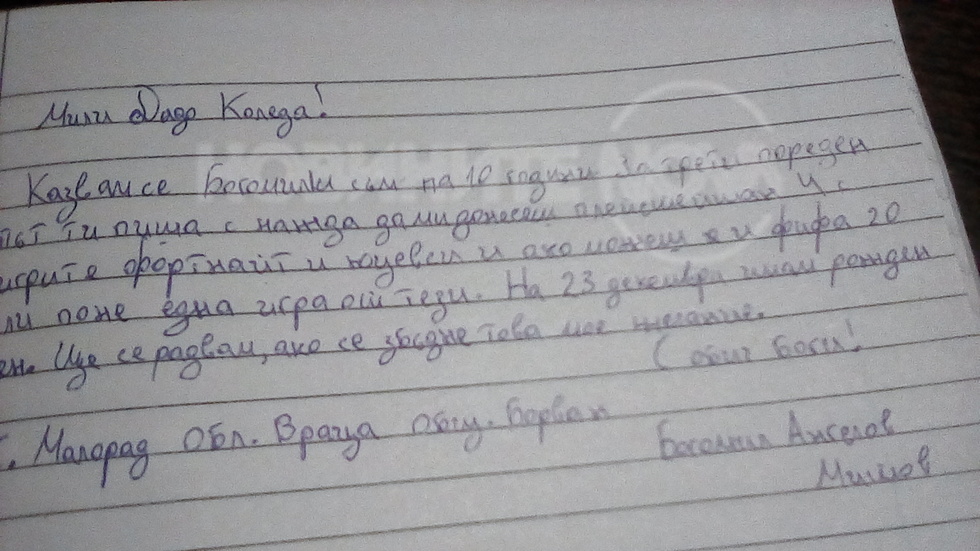 Мили Дядо Коледа!
Казвам се Богомил и съм на 10 години За трети пореден
път ти пиша с нажда да ми донесеш плейстейшан 4 с
игрите фортнайт и и ако можеш и фифа 20
или поне една игра от тези. На 23 декември имам рожден
ен. Ще се радвам, ако се сбъдне това мое желание.
С обич Боги!
. Малорад Обл. Враца Общ. Борван
Богомил Ангелов
Милчов